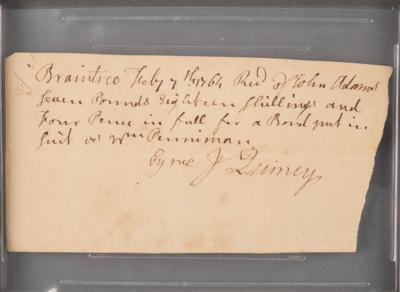 Braintree Feby 7th 1764 Recd of John Adams
Seven Pounds Eighteen Shillings and
Four Pence in full for a Bond put in
Suit vs Wm Penniman
by me J Quincy